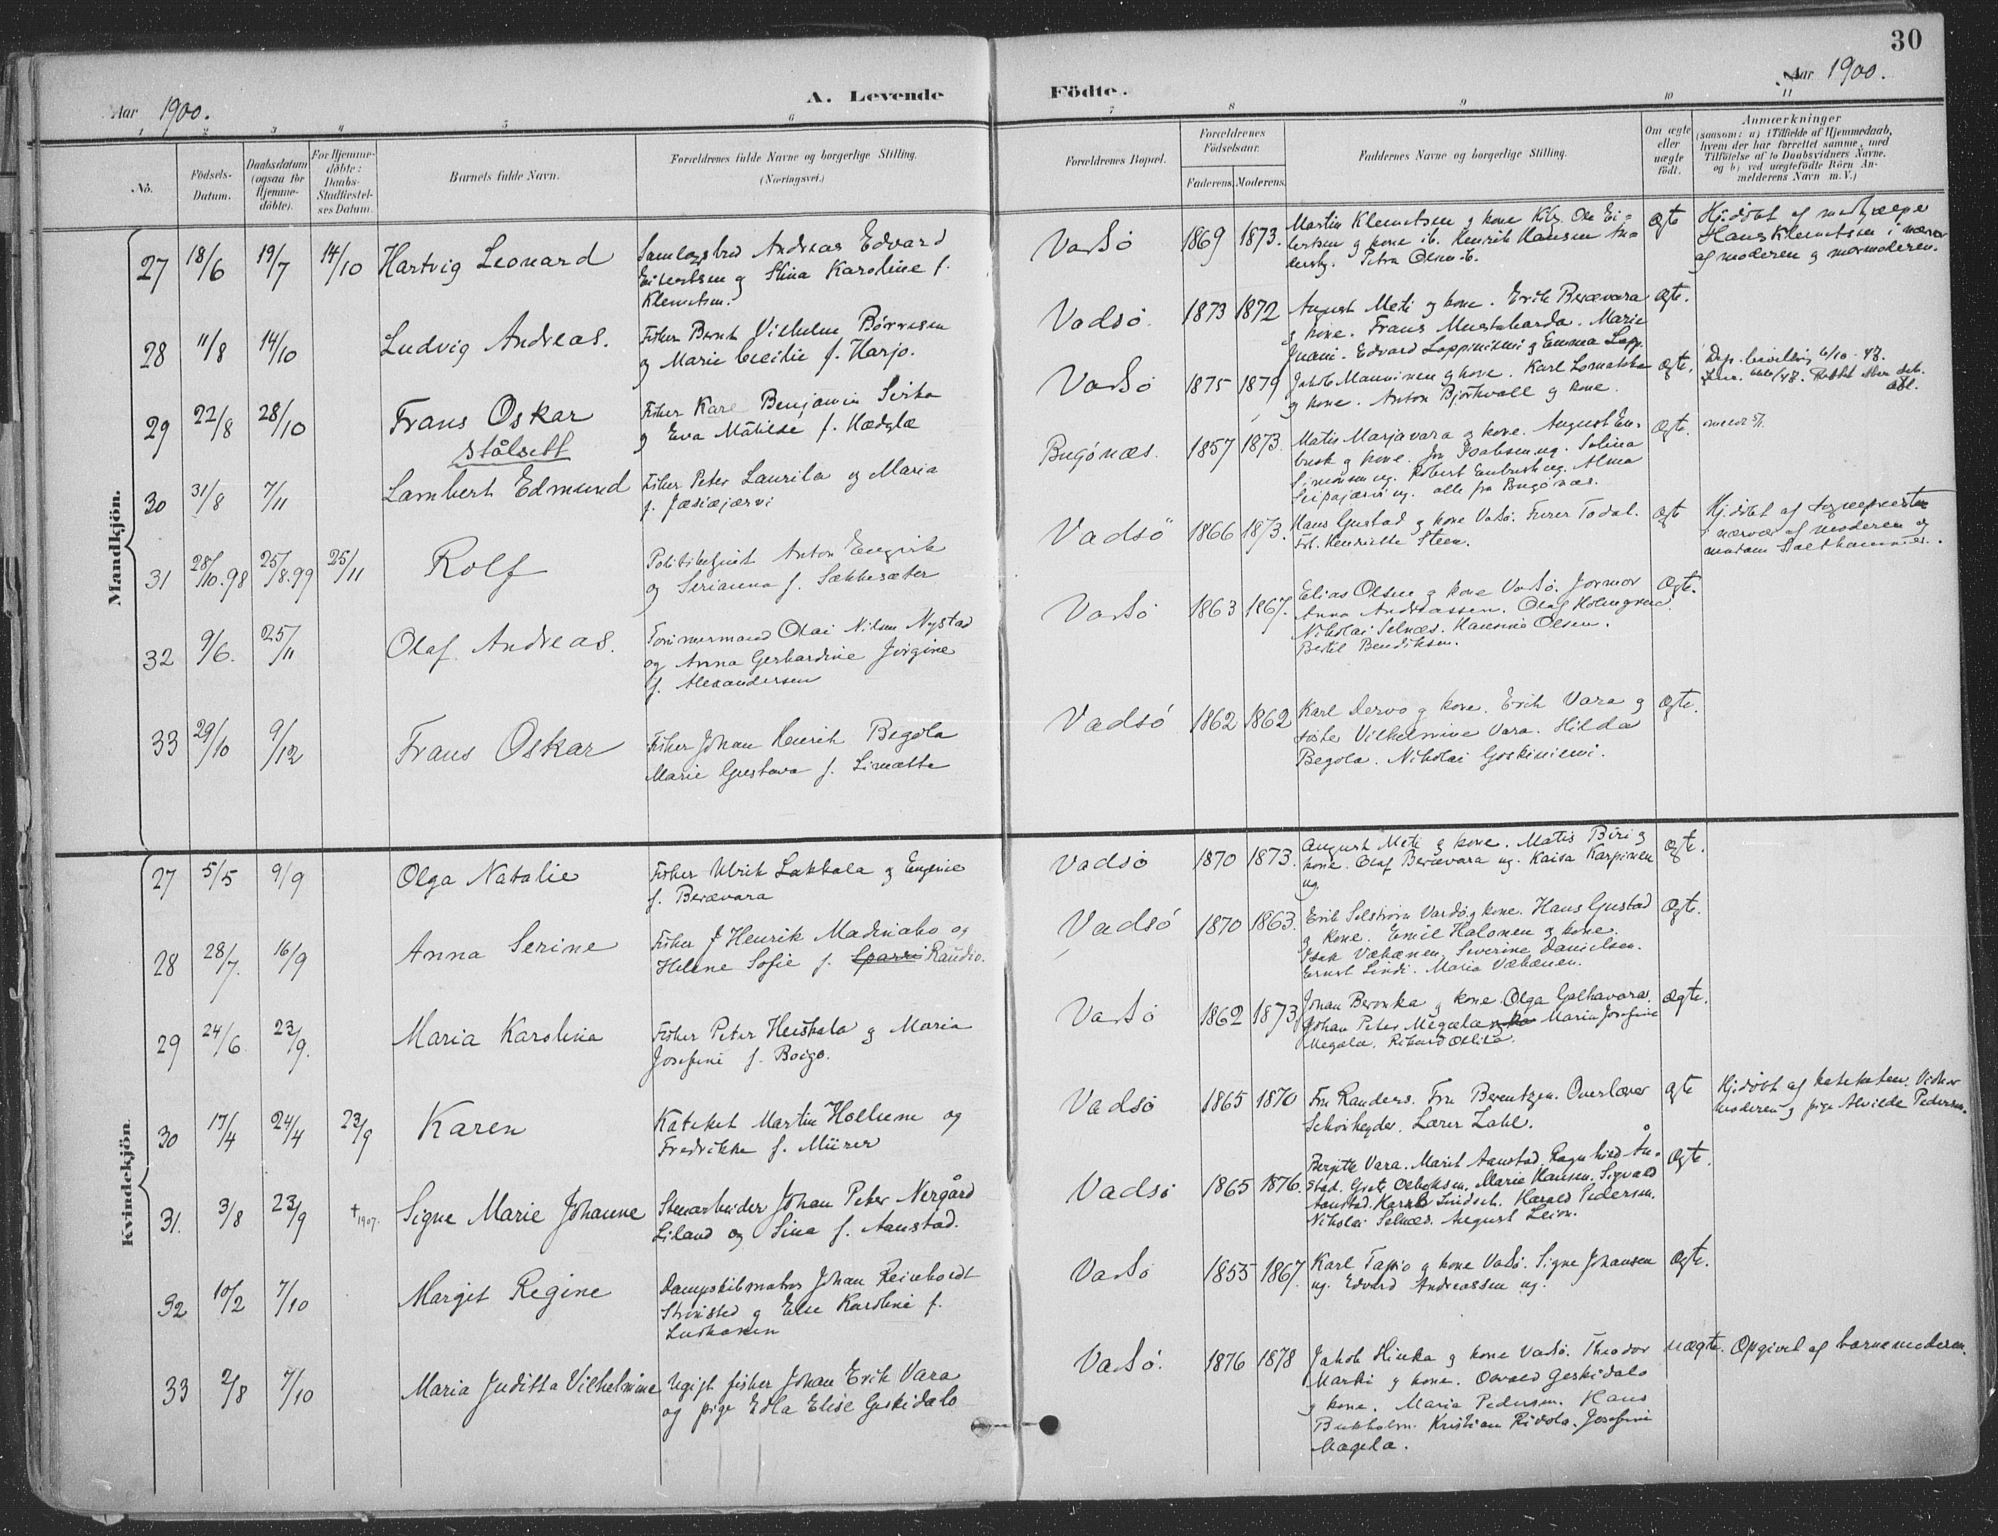 30
Aar 1900.
A. Levende
Födte.
Aar 1900.
1 2 3 4 5 6 7 8 9 10 11
No.
Födsels-
Datum.
Daabsdatum
(ogsaa for
Hjemme-
döbte).
For Hjemme-
döbte:
Daabs-
Stadfæstel-
ses Datum.
Barnets fulde Navn.
Forældrenes fulde Navne og borgerlige Stilling.
(Næringsvei.)
Forældrenes Bopæl.
Forældrenes
Födselsaar.
Faderens.
Moderens.
Faddernes Navne og borgerlige Stilling.
Om ægte
eller
uægte
födt.
Anmærkninger
(saasom: a) i Tilfælde af Hjemmedaab,
hvem der har forrettet samme, med
Tilföielse af to Daabsvidners Navne.
og b) ved uægtefödte Börn An-
melderens Navn m. V.)
Mandkjön.
27 18/6 19/7 14/10 Hartvig Leonard
Andreas Edvard
Eilertsen og Stina Karoline f.
Klemetsen.
Vadsö 1869 1873.
Martin Klemetsen og kone Kiby. Ole Ei-
lertsen og kone ib. Henrik Hansen An-
dersby. Petra Olsen ib.
Ægte
Hj.döbt af
Hans Klemetsen i nærv
af moderen og mormoderen.
28 11/8 14/10 Ludvig Andreas.
Fisker Bernt Vilhelm Börresen
og Marie Cecilie f. Harjo.
Vadsö. 1873 1872
August Meti og kone. Erik Beravara
og kone. Frans Mustaharda. Marie
Juani. Edvard Lappiniemi og Emma Lapp.
Ægte.
29 22/8 28/10 Frans Oskar
Stålsett
Fisker Karl Benjamin Sirka
og Eva Matilde f. Hædglæ
Vadsö 1875 1879
Jakob Manninen og kone. Karl Lomakka
og kone. Anton Björkvall og kone.
Ægte.
Dep. bevilling 6/10-47.
30 31/8 7/11 Lambert Edmund
Fisker Peter Laurila og Maria
f. Jæsiæjærvi
Bugönæs. 1857 1873
Matis Marjavara og kone. August En-
busk og kone. Selina
Simonsen ug. Robert Enbusk ug. Alma
Seipajærvi ug. alle fra Bugönæs.
Ægte.
31 28/10.98 25/8.99 25/11 Rolf
Politibetjent Anton Engvik
og Serianna f. Sakkesæter
Vadsö 1866 1873.
Hans Gustad og kone Vadsö. Furer Todal.
Frk. Henriette Steen.
Ægte
Hj.döbt af sognepresten
i nærvær af moderen og
madam
32 9/6. 25/11 Olaf Andreas.
Tömmermand Olai Nilsen Nystad
og Anna Gerhardine Jörgine
f. Alexandersen
Vadsö 1863 1867.
Elias Olsen og kone Vadsö. Jormor
Anna Andreassen. Olaf Holmgren.
Nikolai Selnæs. Hansine Olsen.
Bertil Bendiksen.
Ægte.
33 29/10 9/12 Frans Oskar
Fisker Johan Henrik Begola
Marie Gustava f. Limatta
Vadsö 1862 1862
Karl Dervo og kone. Erik Vara og
söster Vilhelmine Vara. Hilda
Begola. Nikolai Goskiniemi.
Ægte.
Kvindekjön.
27 5/5 9/9 Olga Natalie
Fisker Ulrik Lakkala og Eugenie
f. Beravara
Vadsö 1870 1873.
August Meti og kone. Matis Piri og
kone. Olaf Beravara ug. Kaisa Karpinen
ug.
Ægte.
28 28/7. 16/9 Anna Serine
Fisker J Henrik Madiniaho og
Helene Sofie f. Sparri Raudio.
Vadsö 1870 1863.
Erik Selström Vardö og kone. Hans Gustad
og kone. Emil Halonen og kone.
Isak Væhænen, Severine Danielsen.
Ernst Lindi. Maria Væhænen.
Ægte.
29 24/6 23/9. Maria Karolina
Fisker Peter Heiskala og Maria
Josefine f. Boigo.
Vadsö 1862 1873
Johan Beronka og kone. Olga Galhavara.
Johan Peter Megæla Maria Josefine
Megæla. Rikard Ollila.
ægte.
30 17/4 24/4 23/9 Karen
Kateket Martin Hollum og
Fredrikke f. Mürer
Vadsö 1865 1870
Fru Randers. Fru Berentzen. Overlærer
Schönheyder. Lærer Zahl.
ægte
Hj.döbt af kateketen. Vidner
moderen og pige Alvilde Pedersen.
31. 3/8 23/9 † 1907. Signe Marie Johanne
Stenarbeider Johan Peter Nergård
Liland og Sina f. Aanstad.
Vadsö 1865 1876.
Bergitte Vara. Marit Aanstad. Ragnhild Ån-
stad. Gret Olleksen. Marie Hansen. Sigvald
Aanstad. Harald Pedersen.
Nikolai Selnæs. August Leion.
Ægte.
32 10/2 7/10 Margit Regine
Dampskibmatros Johan Reinholdt
Strimsted og Else Karoline f.
Luskanen
Vadsö 1855 1867.
Karl Tapio og kone Vadsö. Signe Johansen
ug. Edvard Andreassen ug.
Ægte.
33 2/8 7/10 Maria Juditta Vilhelmine
Ugift fisker Johan Erik Vara
og pige Edla Elise Geskidalo
Vadsö. 1876 1878
Jakob Hinka og kone Vadsö. Theodor
Marki og kone. Osvald Geskidalo
og kone. Maria Pedersen. Hans
Bukholm. Kristian Ridola. Josefine
Magela.
Uægte.
Opgivet af barnemoderen.